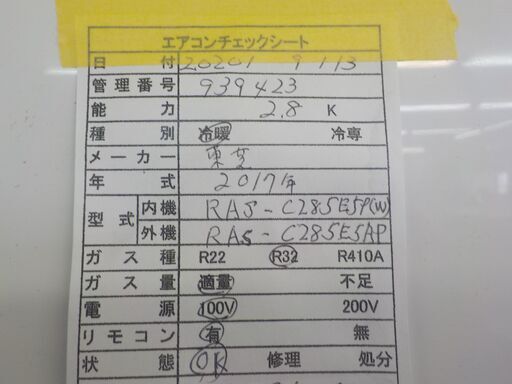 エアコンチェックシート
日 付 2020/ 9 /13
管理番号 939423
能 力 2.8 K
種 別 冷暖 冷専
メーカー 東芝
年 式 2017年
型式 内機 RAS-C285E5P(W)
外機 RAS-C285E5AP
ガス種 R22 R32 R410A
ガス量 適量 不足
電 源 100V 200V
リモコン 有 無
状 態 OK 修理 処分